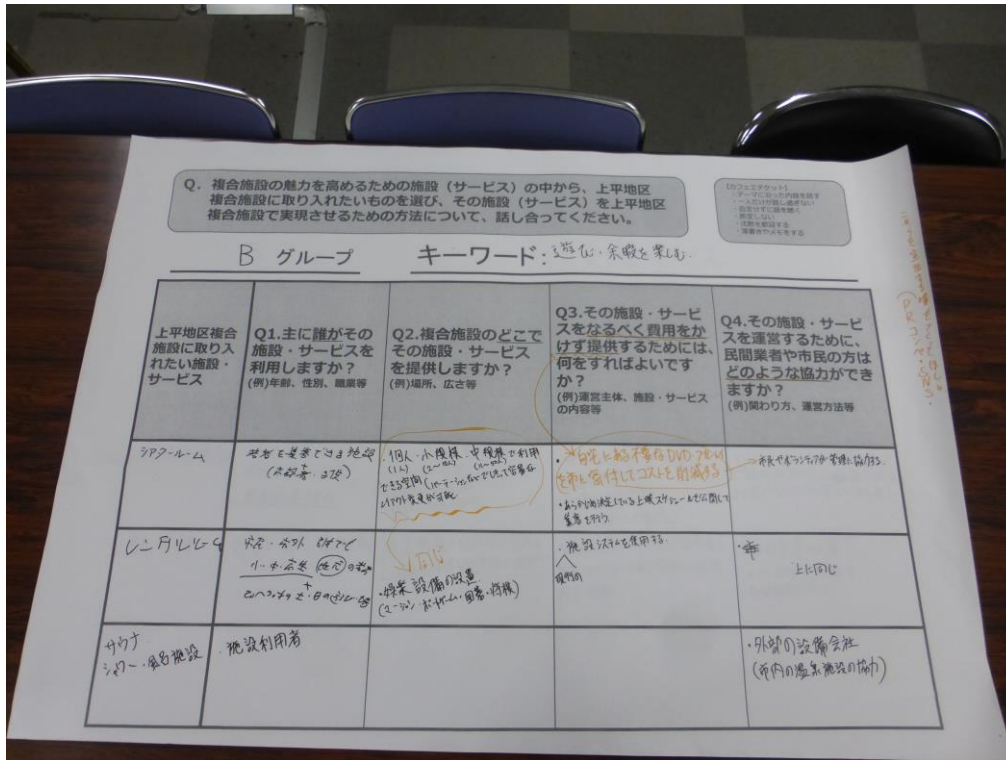 Q. 複合施設の魅力を高めるための施設（サービス）の中から、上平地区
複合施設に取り入れたいものを選び、その施設（サービス）を上平地区
複合施設で実現させるための方法について、話し合ってください。
【カフェエチケット】
・テーマに沿った内容を話す
・一人だけが話し過ぎない
・否定しない
・落書きやメモをする
B グループ
キーワード：遊ぶ・余暇を楽しむ
上平地区複合
施設に取り入
れたい施設・
サービス
Q1.主に誰がその
施設・サービスを
利用しますか？
(例)年齢、性別、職業等
Q2.複合施設のどこで
その施設・サービス
を提供しますか？
(例)場所、広さ等
Q3.その施設・サービ
スをなるべく費用をか
けず提供するためには、
何をすればよいです
か？
(例)運営主体、施設・サービス
の内容等
Q4.その施設・サービ
スを運営するために、
民間業者や市民の方は
どのような協力ができ
ますか？
(例)関わり方、運営方法等
シアタールーム
・個人・小規模・中規模で利用
(1人)
できる空間
レイアウト変更が可能
・自宅にある不要なDVD
を市に寄付してコストを削減する
・あらかじめ決定している上映スケジュールを公開して
募集を行う。
市民やボランティアが管理に協力する。
レンタルルーム
同じ
・娯楽設備の設置
(マージャン・ボードゲーム・囲碁・将棋)
・施設システムを使用する。
上に同じ
サウナ
シャワー・
・施設利用者
・外部の設備会社
(市内の温泉施設の協力)